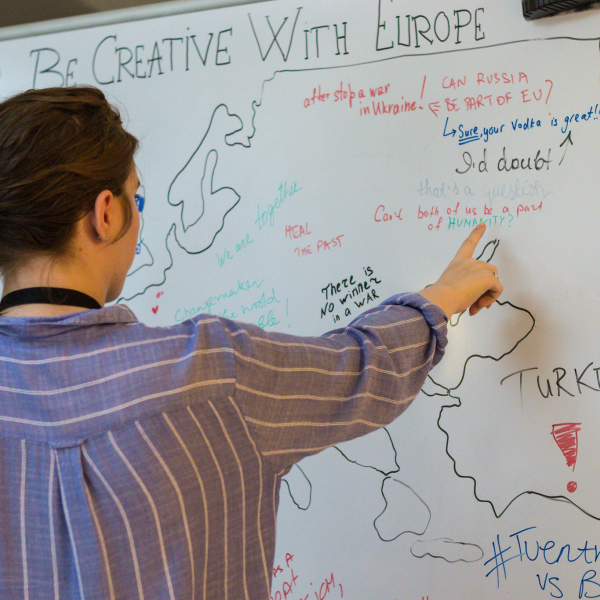 BE CREATIVE WITH EUROPE
after stop a war
in Ukraine!
CAN RUSSIA
BE PART OF EU?
Sure, your Vodka is great!!
I'd doubt
that's a question
Can both of us be a part
of HUMANITY?
We are together
HEAL
THE PAST
THERE IS
NO WINNER
in a WAR
Changemaker
the world
!
TURK
!
vs B